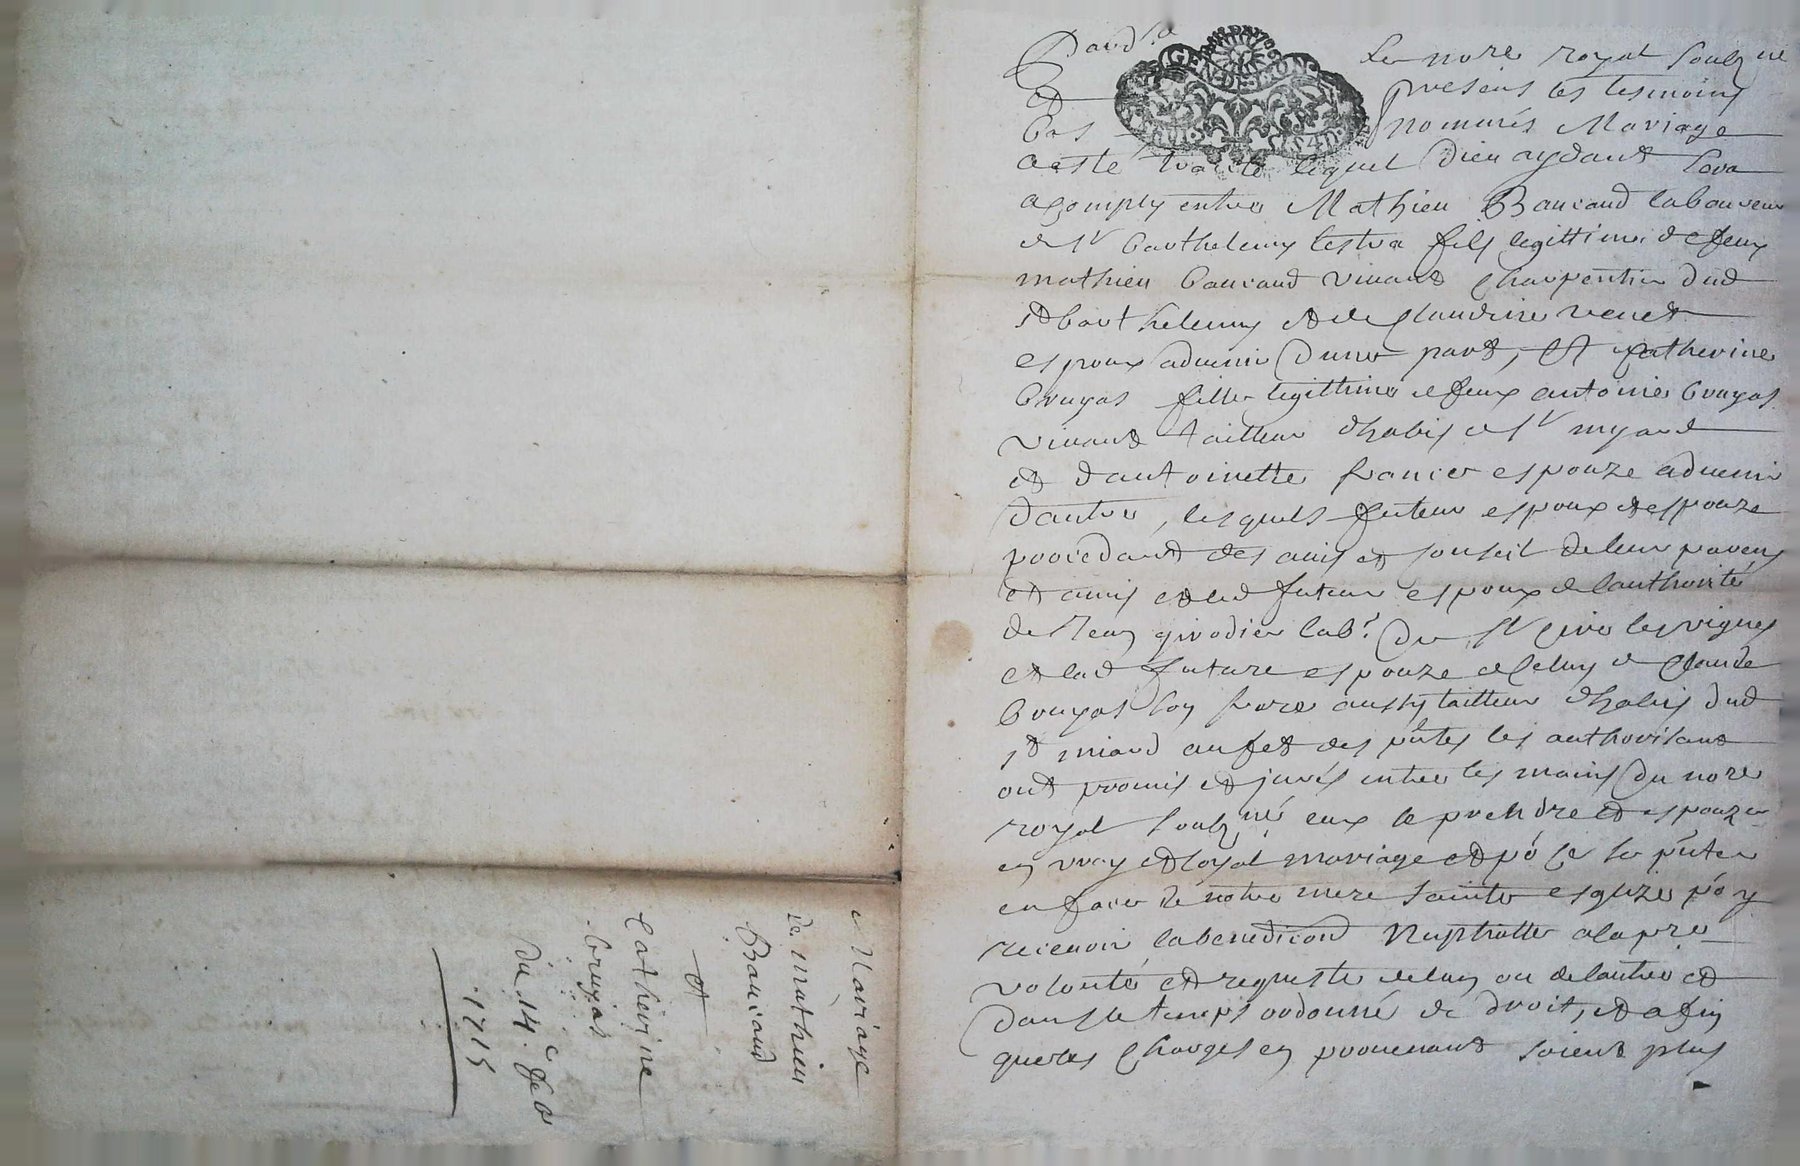 Mariage
de mathieu
Baucaud
et
Catherine
bruyas
du 14e feb
1715
Pard.t
GEN DE LYON
Le nore royal soubzne
et presens les tesmoins
bas nommés Mariage
a esté traicté lequel Dieu aydant sera
acomply entre Mathieu Baucaud laboureur
de st barthelemy lestra fils legittime de feux
mathieu baucaud vivant charpentier dud
st barthelemy et de claudine venet
espoux advenir d'une part, Et catherine
bruyas fille legittime de feux antoine bruyas
vivant tailleur d'habis de st myard
et d'antoinette francer espouze advenir
d'autre, lesquels futeur espoux et espouze
procedant des avis et conseil de leur parens
et amis et led futeur espoux de l'authorité
de Jean girodier labr. de st Cire les vignes
et lad future espouze de celuy de claude
bruyas son frere aussy tailleur d'habis dud
st miard au fet des pntes les authorisant
ont promis et jurés entre les mains du nore
royal soubzné eux se prendre et espouzer
en vray et loyal mariage et po ce se pnter
en face de notre mere sainte esglize po y
recevoir la benediction Nuptialle a la pre
volonté et requeste de lun ou de lautre et
dans le temps ordonné de droit, et afin
que les charges en provenant soient plus